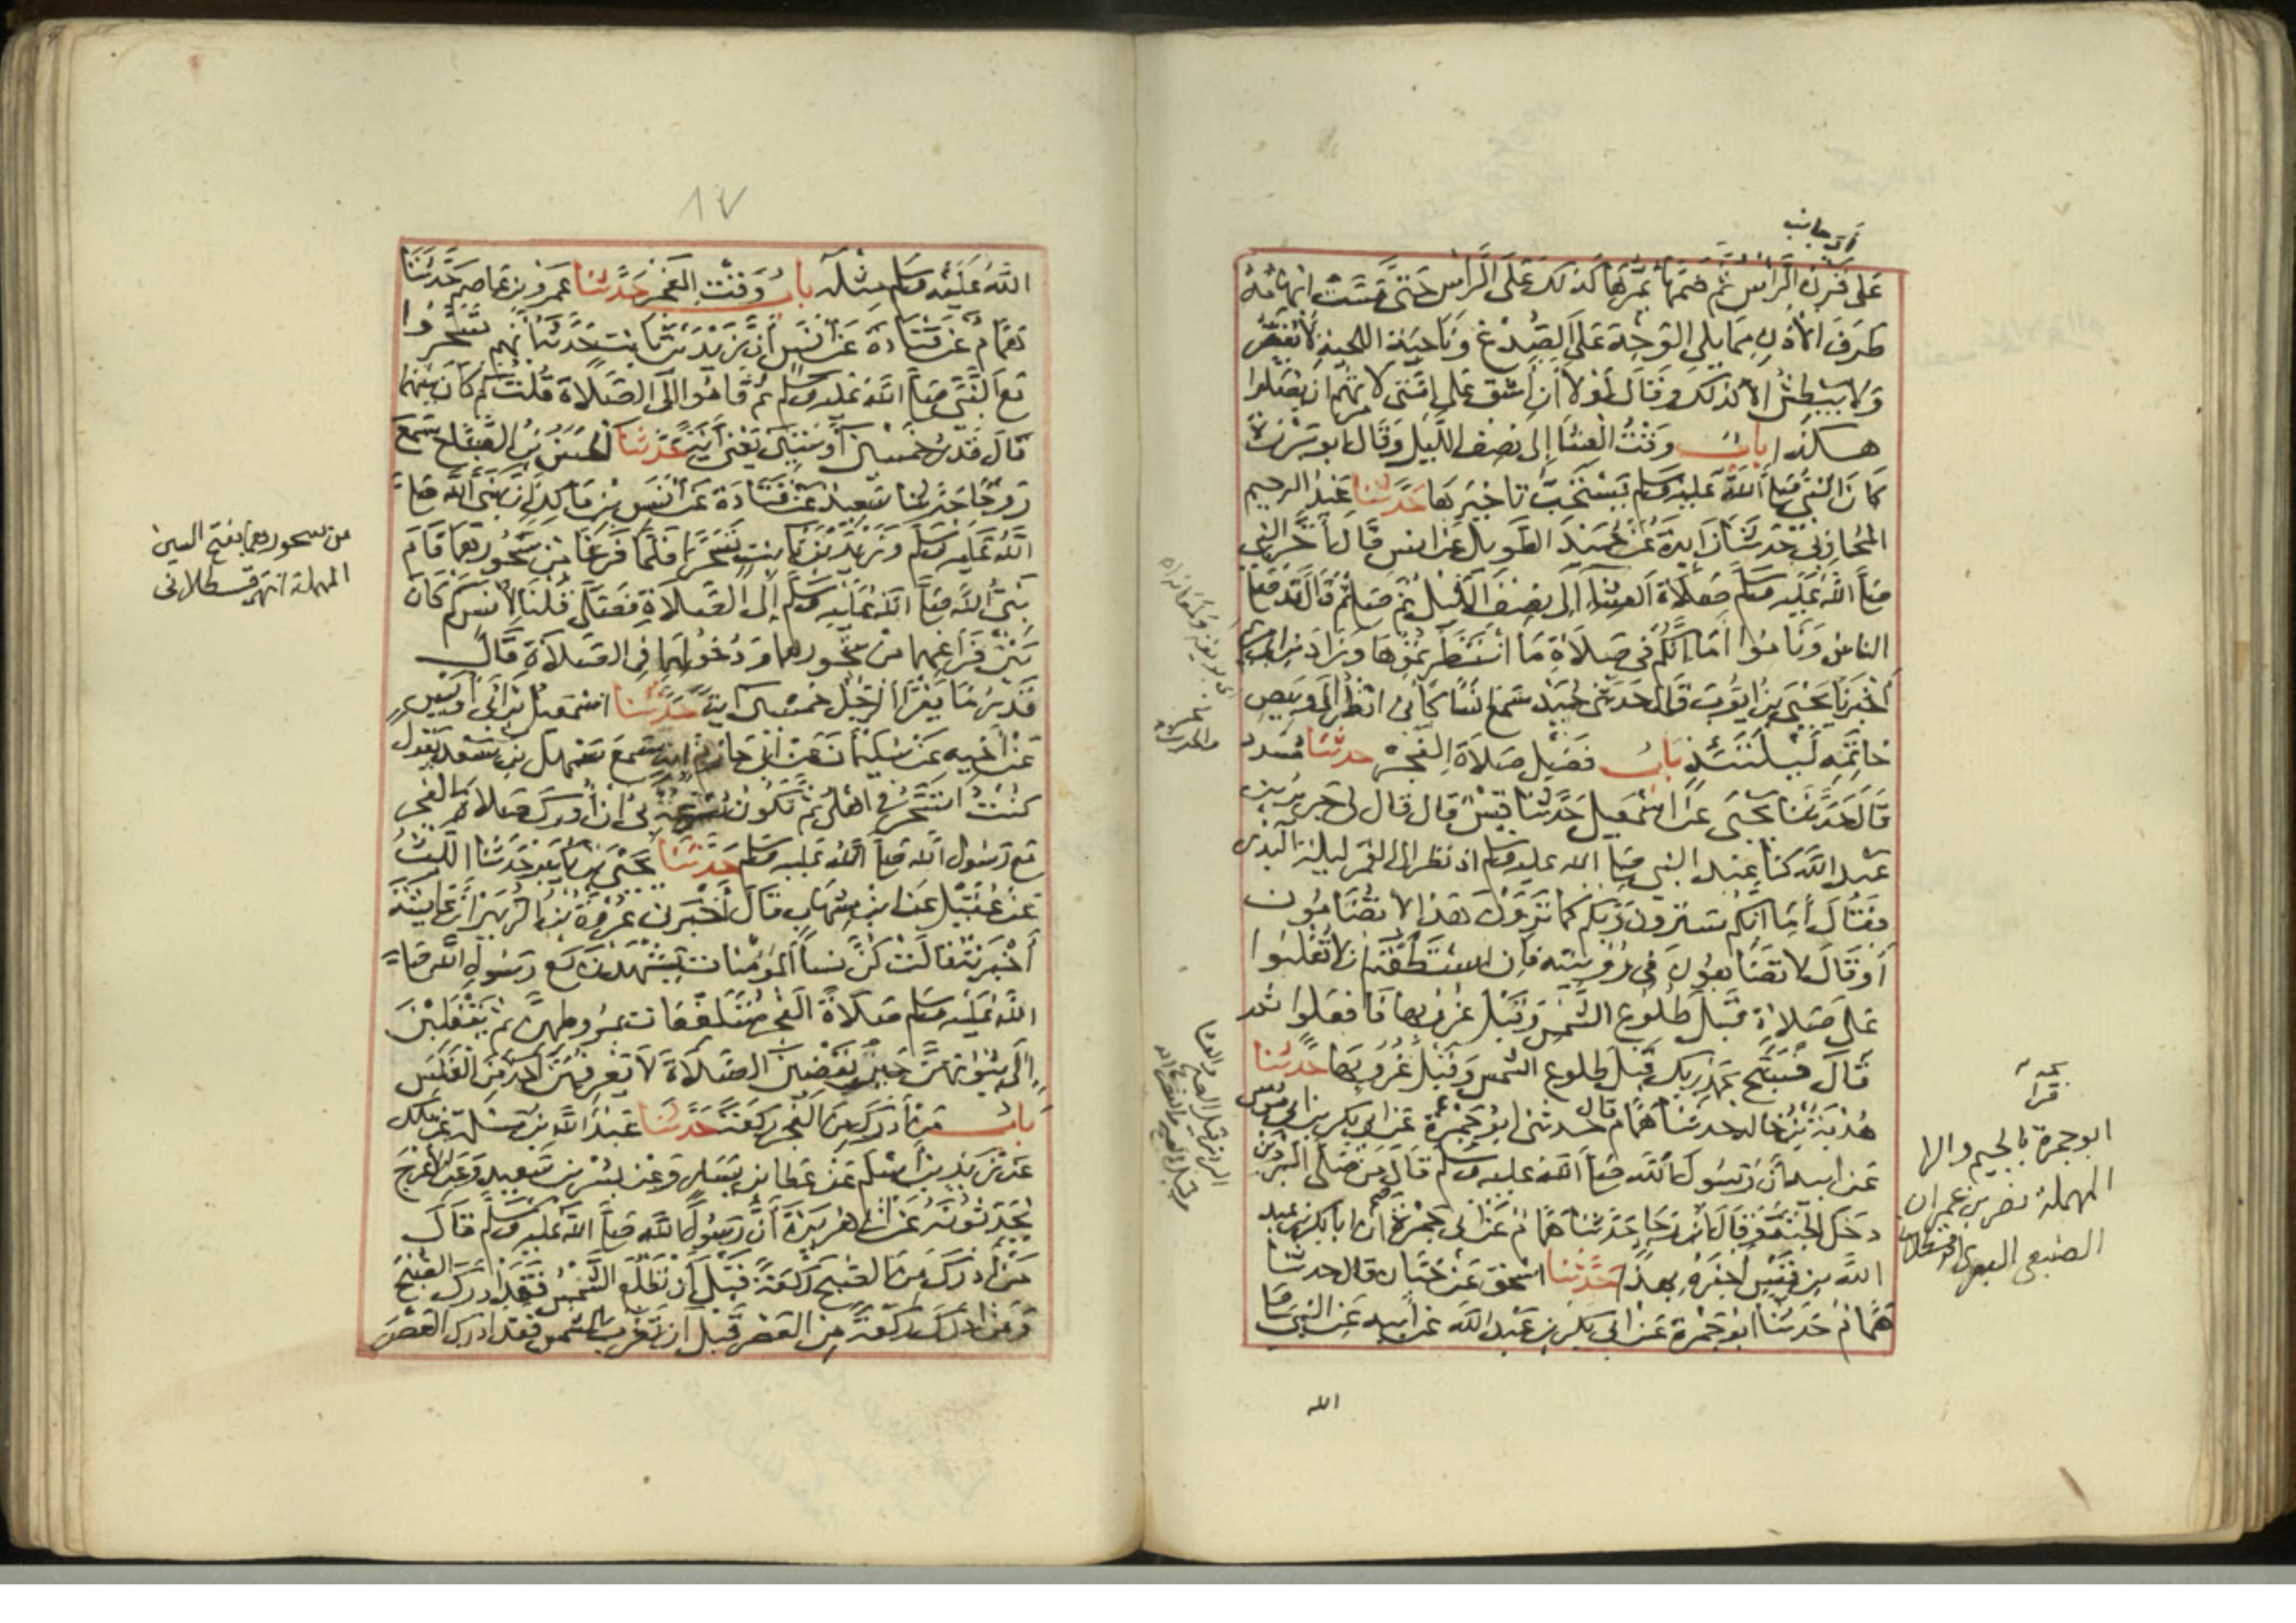 أى جانب
على قرن الراس ثم ضمها يمرها كذلك على الراس حتى مست ابهامه
طرف الاذن مما يلى الوجه على الصدغ وناحية اللحية لا يقصر
ولا يبطش الا كذلك وقال لولا أن أشق على امتى لامرتهم ان يصلوا
هكذا باب وقت العشا إلى نصف الليل وقال ابو برزة
كان النبي صلى الله عليه وسلم يستحب تاخيرها حدثنا عبد الرحيم
المحاربى حدثنا زايدة عن حميد الطويل عن انس قال أخر النبي
صلى الله عليه وسلم صلاة العشاء إلى نصف الليل ثم صلى ثم قال قد صلى
الناس وناموا أما إنكم فى صلاة ما انتظرتموها وزاد ابن ابى مريم
أخبرنا يحيى بن ايوب قال حدثنى حميد سمع انسا كأنى انظر إلى وبيص
خاتمه ليلتئذ باب فضل صلاة الفجر حدثنا مسدد
قال حدثنا يحيى عن اسمعيل حدثنا قيس قال قال لى جرير بن
عبد الله كنا عند النبي صلى الله عليه وسلم اذ نظر الى القمر ليلة البدر
فقال أما انكم سترون ربكم كما ترون هذا لا تضامون
أو قال لا تضاهون فى رؤيته فإن استطعتم ان لا تغلبوا
على صلاة قبل طلوع الشمس وقبل غروبها فافعلوا ثم
قال فسبح بحمد ربك قبل طلوع الشمس وقبل غروبها حدثنا
هدبة بن خالد حدثنا همام قال حدثنى ابو جمرة عن ابى بكر بن ابى موسى
عن ابيه أن رسول الله صلى الله عليه وسلم قال من صلى البردين
دخل الجنة وقال ابن رجا حدثنا همام عن ابى جمرة أن ابا بكر بن عبد
الله بن قيس اخبره بهذا حدثنا اسحق عن حبان قال حدثنا
همام حدثنا ابو جمرة عن ابى بكر بن عبد الله عن أبيه عن النبي صلى
الله
ابو جمرة بالجيم والرا
المهملة نصر بن عمران
الضبعى البصرى قسطلانى
١٧
الله عليه وسلم مثله باب وقت الفجر حدثنا عمرو بن عاصم حدثنا
همام عن قتادة عن أنس أن زيد بن ثابت حدثه أنهم تسحروا
مع النبي صلى الله عليه وسلم ثم قاموا الى الصلاة قلت كم كان بينهما
قال قدر خمسين أو ستين يعنى آية حدثنا الحسن بن الصباح سمع
روحا حدثنا سعيد عن قتادة عن أنس بن مالك أن نبى الله صلى
الله عليه وسلم وزيد بن ثابت تسحرا فلما فرغا من سحورهما قام
نبى الله صلى الله عليه وسلم إلى الصلاة فصلى قلنا لانس كم كان
بين فراغهما من سحورهما ودخولهما فى الصلاة قال
قدر ما يقرأ الرجل خمسين اية حدثنا اسمعيل بن أبى أويس
عن أخيه عن سليمان عن أبى حازم انه سمع سهل بن سعد يقول
كنت اتسحر فى اهلى ثم تكون سرعة بى أن أدرك صلاة الفجر
مع رسول الله صلى الله عليه وسلم حدثنا يحيى بن بكير حدثنا الليث
عن عقيل عن ابن شهاب قال أخبرنى عروة بن الزبير أن عايشة
أخبرته قالت كن نساء المؤمنات يشهدن مع رسول الله صلى
الله عليه وسلم صلاة الفجر متلفعات بمروطهن ثم ينقلبن
إلى بيوتهن حين يقضين الصلاة لا يعرفهن أحد من الغلس
باب من أدرك من الفجر ركعة حدثنا عبد الله بن مسلمة عن ملك
عن زيد بن أسلم عن عطا بن يسار وعن بسر بن سعيد وعن الأعرج
يحدثونه عن ابى هريرة أن رسول الله صلى الله عليه وسلم قال
من أدرك من الصبح ركعة قبل أن تطلع الشمس فقد أدرك الصبح
ومن أدرك ركعة من العصر قبل أن تغرب الشمس فقد ادرك العصر
من سحورهما بفتح السين
المهملة انتهى قسطلانى